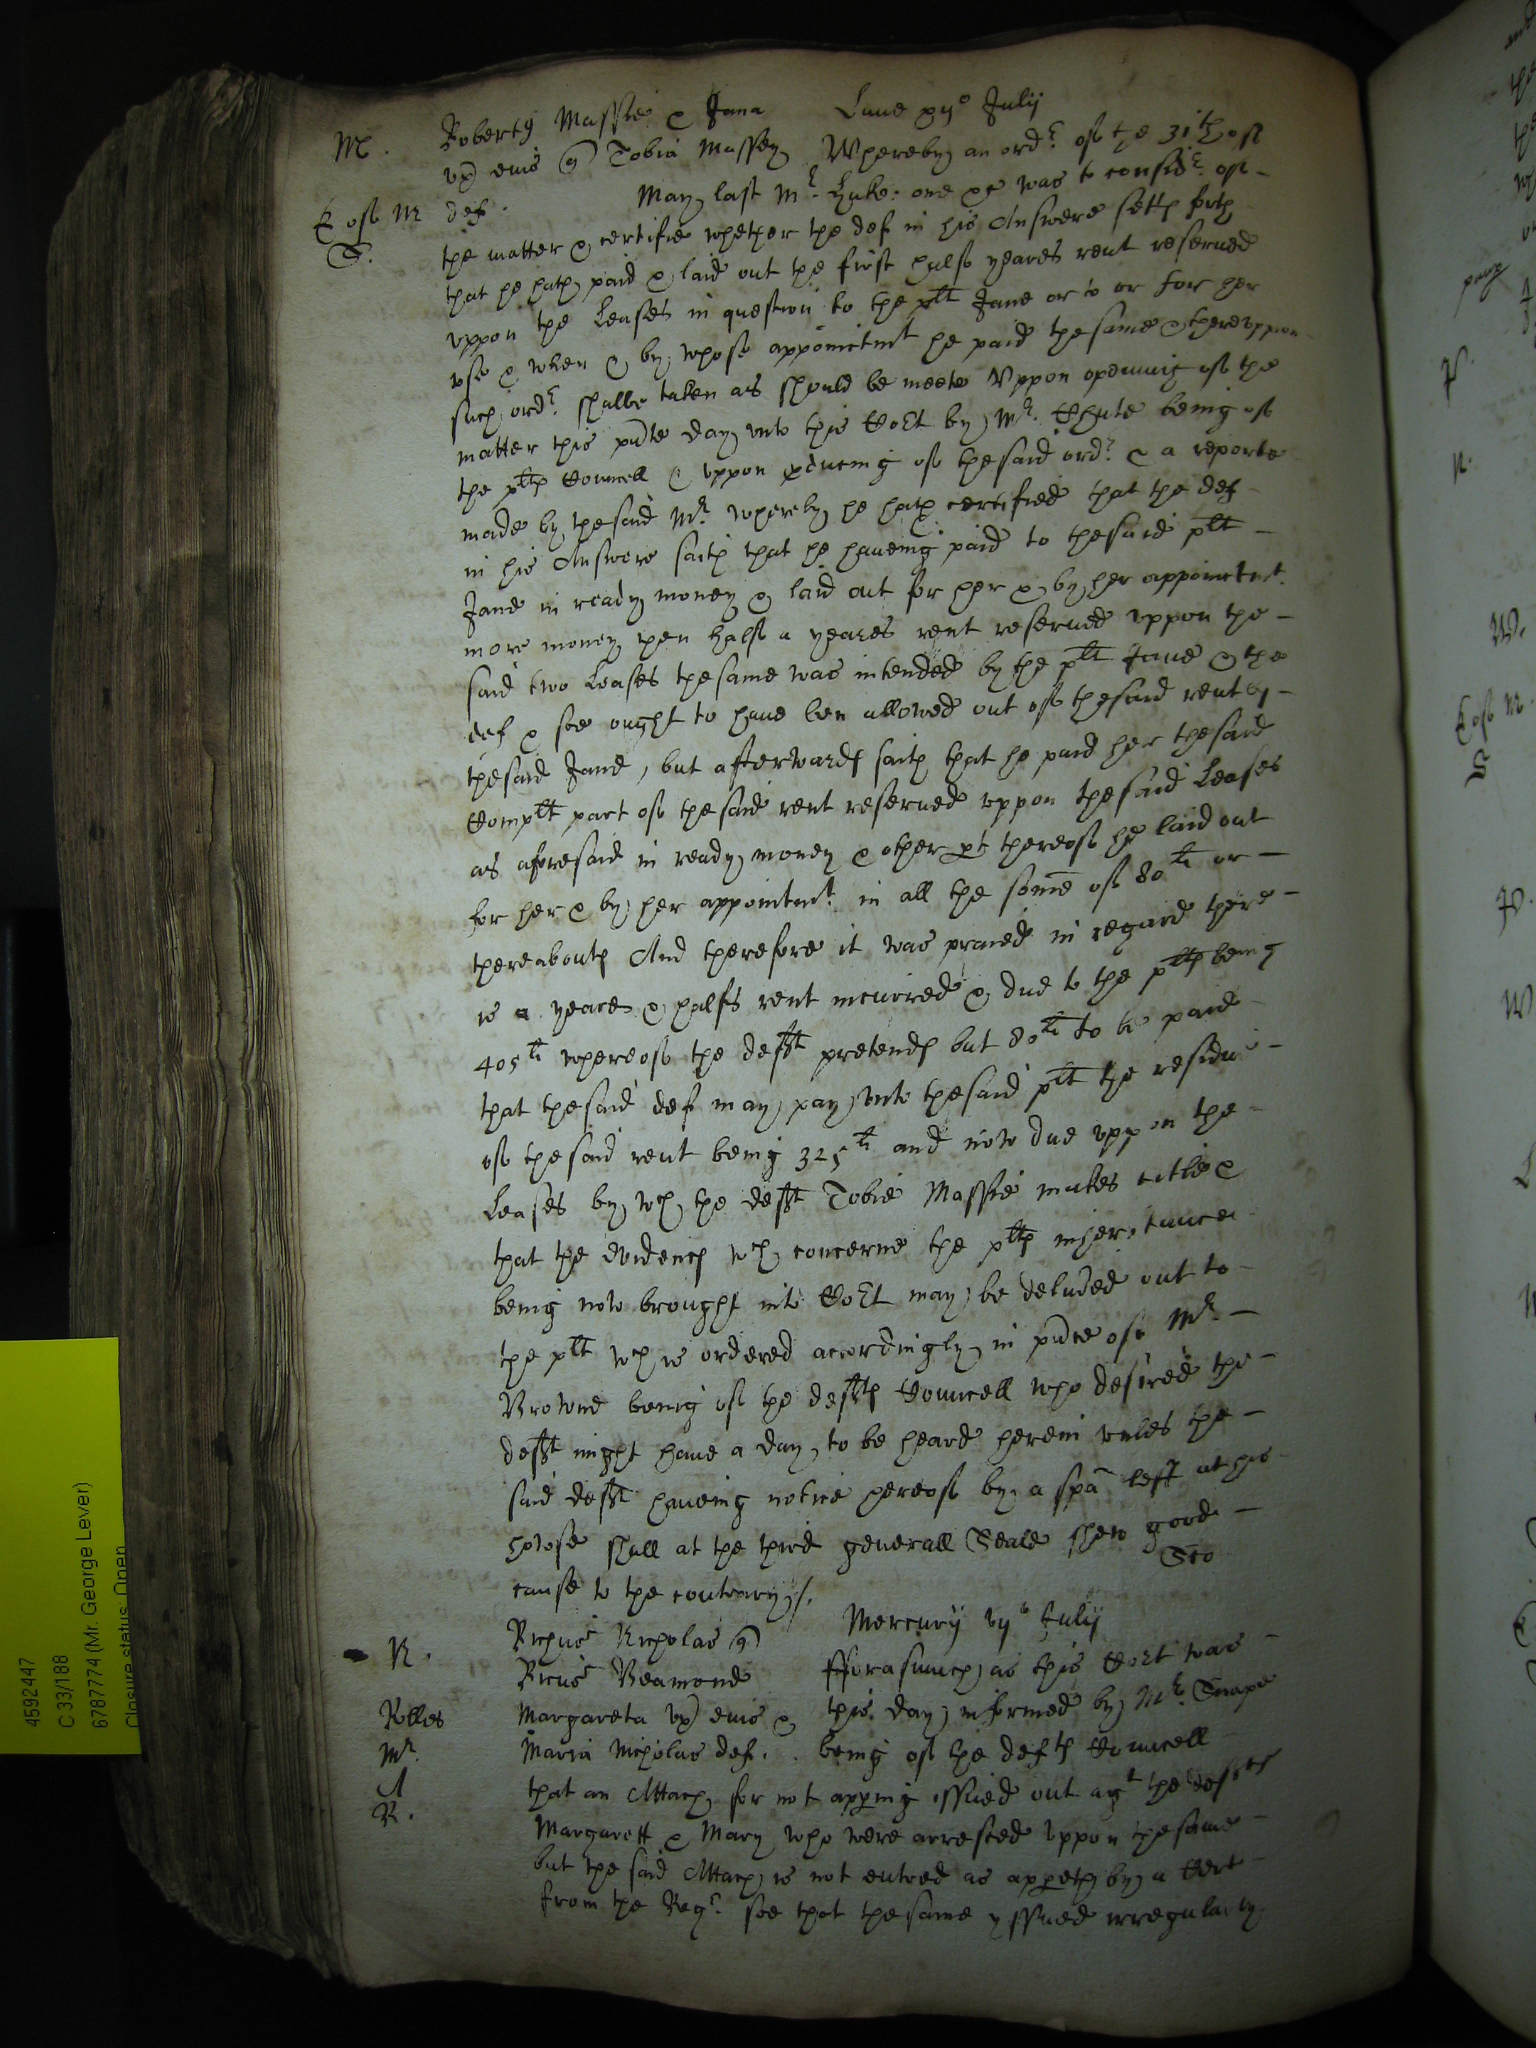 M. Robertus Massie & Jana Lune xijo Julij
vx eius Tobia Massey Whereby an ordr of the 31th of
E of M def. May last Mr. Luke: one &c was to considr. of
S. the matter & certifie whether the def in his Answere setth forth
that he hath paid & laid out the first halfe yeares rent reserued
vppon the Leases in question to the plt Jane or to or for her
vse & when & by whose appointmt he paid the same & therevppon
such ordr. shalbe taken as should be meete Vppon openinge of the
matter this pnte day vnto this Cort by Mr. Chute being of
the plts Councell & vppon pducing of thesaid ordr. & a reporte
made by thesaid Mr. whereby he hath certified that the def
in his Answere saith that he haueing paid to thesaid plt
Jane in ready money & laid out for her & by her appointmt.
more money then halfe a yeares rent reserued vppon the
said two Leases thesame was intended by the plt Jane & the
def & soe ought to haue ben allowed out of thesaid rent by
thesaid Jane, but afterwards saith that he paid her thesaid
Complt part of thesaid rent reserued vppon thesaid Leases
as aforesaid in ready money & other pt thereof he laid out
for her & by her appointmt. in all the some of 80li or
thereabouts And therefore it was praied in regard there
is a yeare & halfs rent incurred & due to the plts being
405li whereof the defft pretends but 80li to be paid
that thesaid def may pay vnto thesaid plt the residue
of thesaid rent being 325li and now due vppon the
Leases by wch the defft Tobie Massie makes title &
that the evidencs wch concerne the plts inheritance
being now brought into Cort may be deliuᵉd out to
the plt wch is ordered accordingly in pnce of Mr.
Browne being of the deffts Councell who desired the
defft might haue a day to be heard herein vnles the
said defft haueing notice hereof by a spa left at his
howse shall at the third generall Seale shew good
cause to the contrary /.
Mercurij vijo Julij
N. Richus Nicholas
Ricus Beamond fforasmuch as this Cort was
Rolles Margareta vx eius & this day informed by Mr. Snape
Mr. Maria Nicholas def. being of the defts Councell
A that an Attach for not apping issued out agt the deffts
R. Margarett & Mary who were arrested vppon thesame
but the said Attach is not entred as appeth by a Cert
from the Regr. soe that thesame yssued irregularly
4592447
C 33/188
6787774 (Mr. George Lever)
Closure status: Open